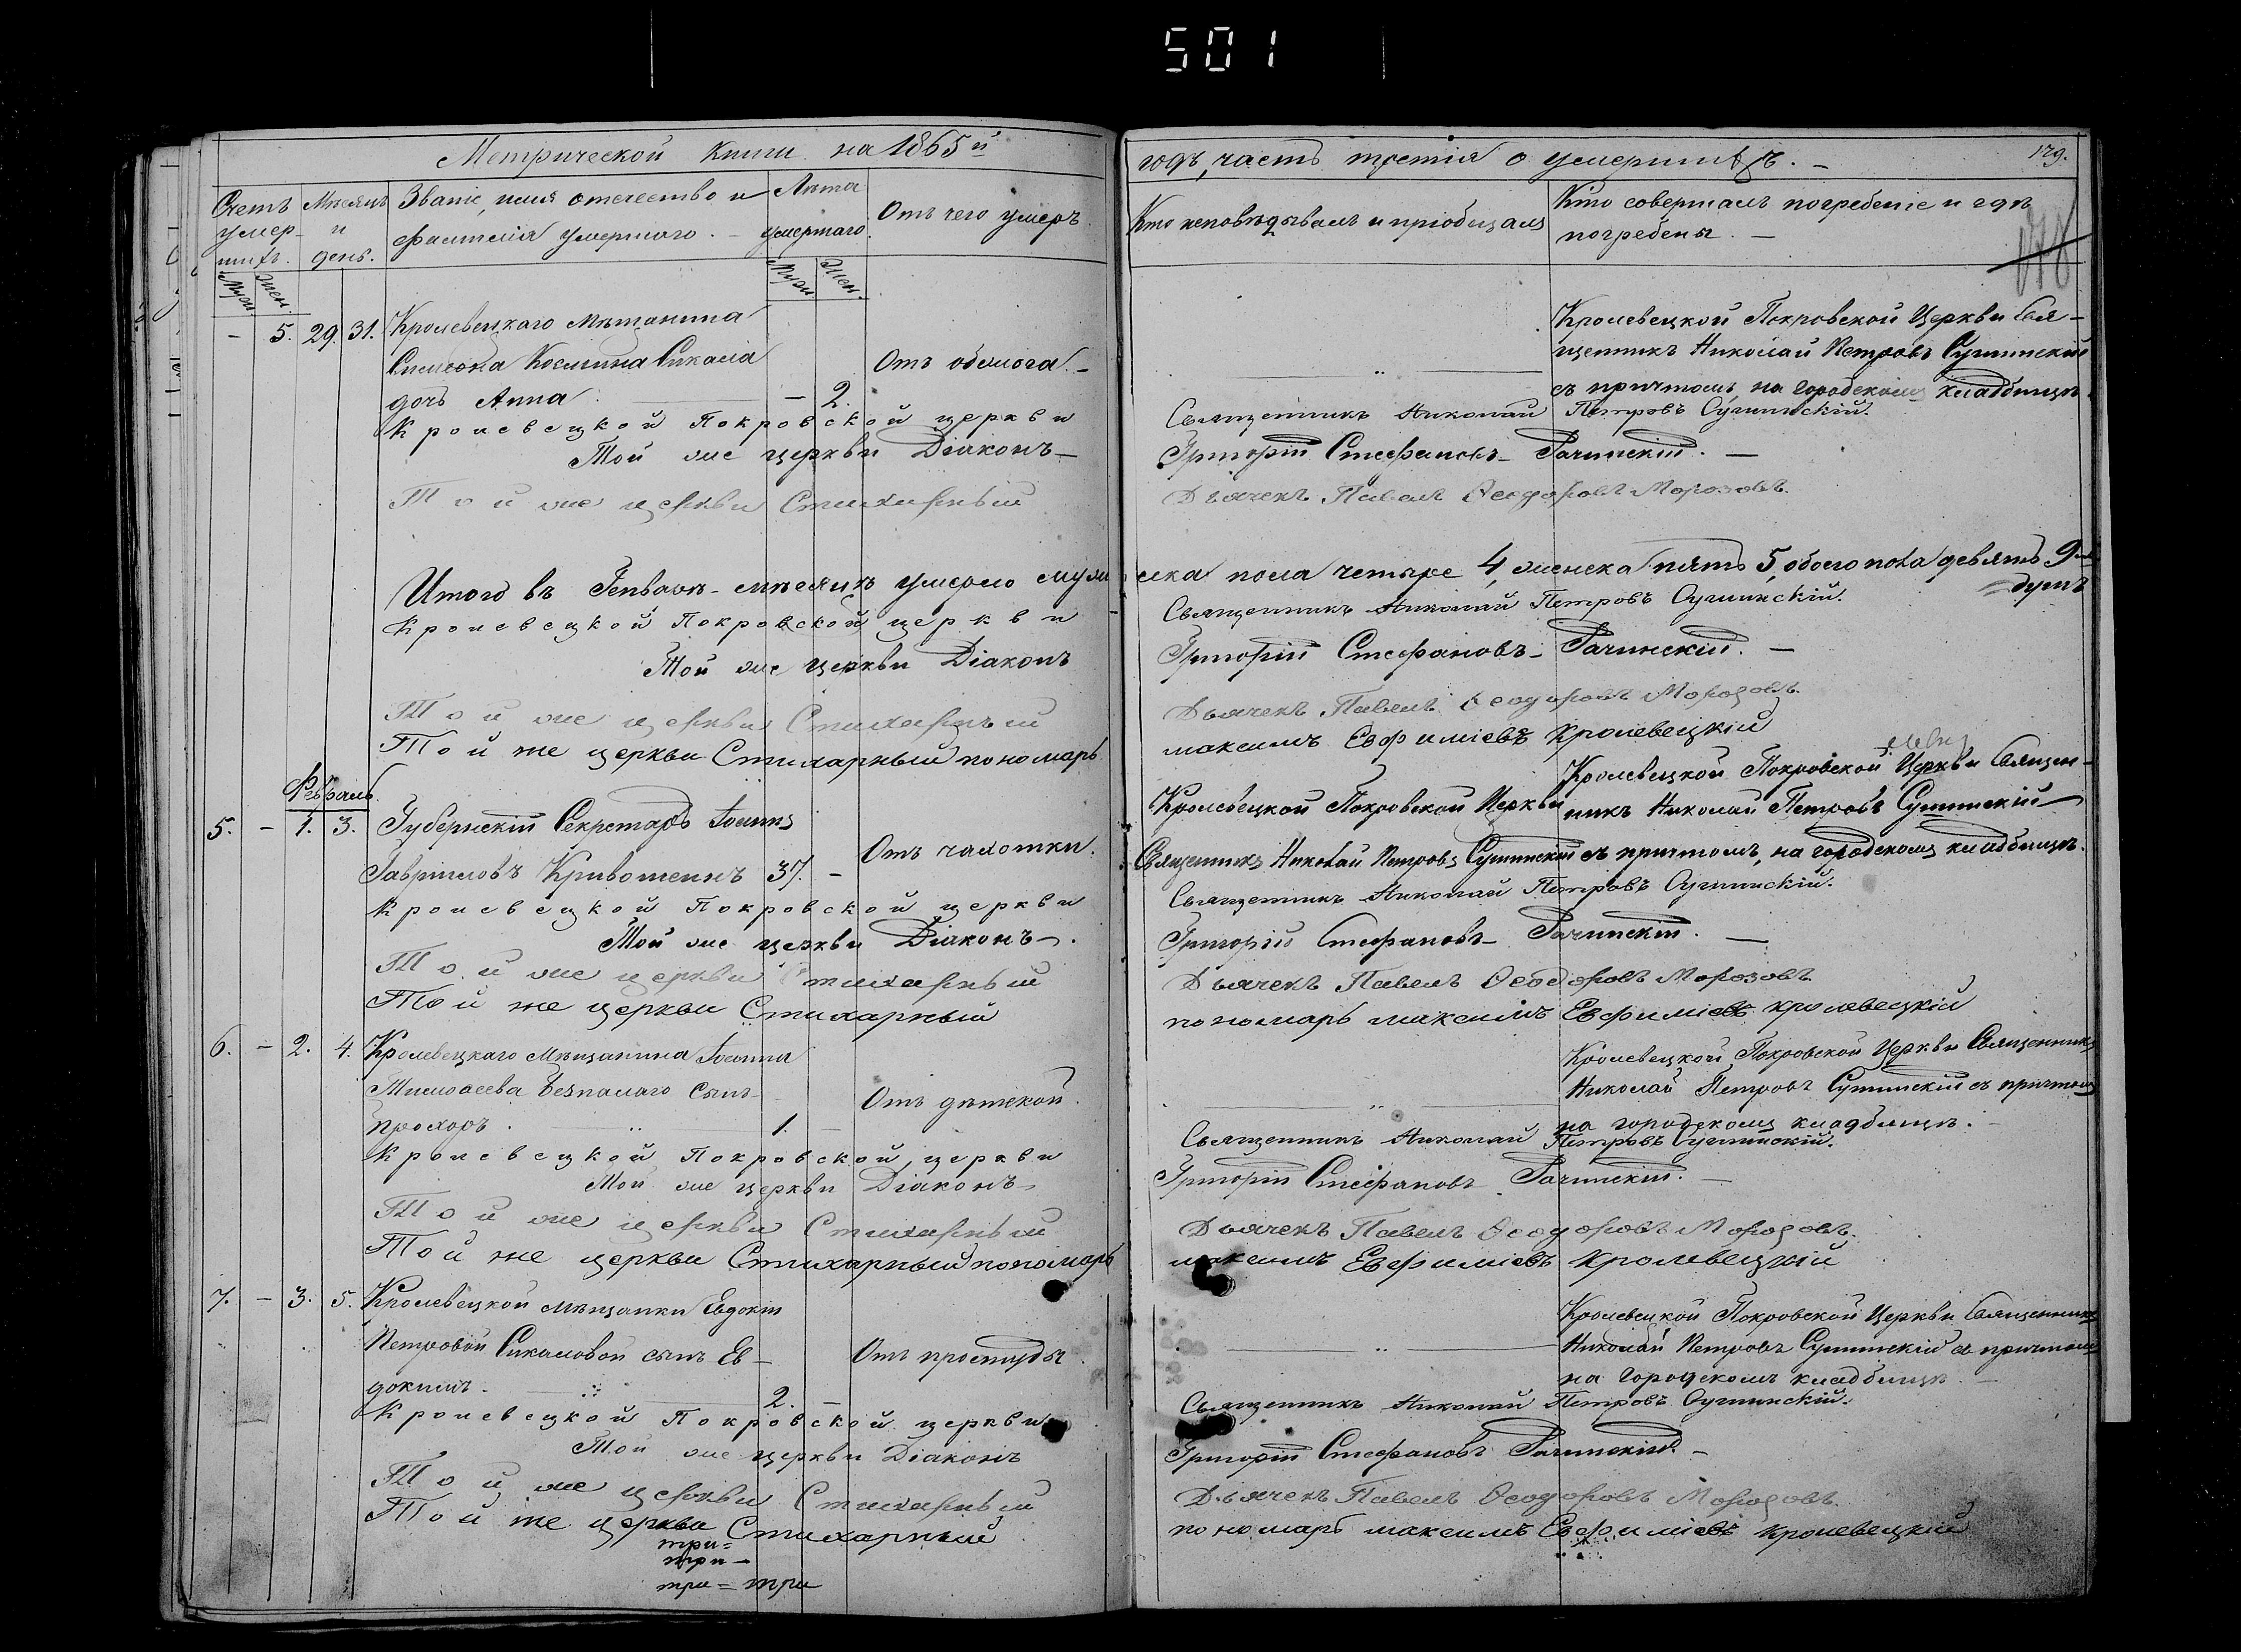 501
Метрической книги на 1865й
Счетъ умер-шихъ.
Мѣсяцъ и день.
Званіе, имя отечество и фамилія умершаго.
Лѣта умершаго.
Отъ чего умеръ
Муж.
Жен.
Муж.
Жен.
- 5. 29. 31. Кролевецкаго мѣщанина
Симеона Косьмина Сикала
Отъ обмога.
дочь Анна - 2.
Кролевецкой Покровской церкви
Той же церкви Діаконъ
Той же церкви Стихарный
Итого въ Генварѣ мѣсяцѣ умерло муж
Кролевецкой Покровской церкви
Той же церкви Діаконъ
Той же церкви Стихарный
Той же церкви Стихарный пономарь
Февраль
5. - 1. 3. Губернскій Секретарь Іоаннъ
Отъ чахотки.
Гавріиловъ Кривошеинъ 37. -
Кролевецкой Покровской церкви
Той же церкви Діаконъ
Той же церкви Стихарный
Той же церкви Стихарный
6. - 2. 4. Кролевецкаго мѣщанина Іоанна
Тимофеева Безпалаго сынъ
Отъ дѣтской.
Прохоръ. 1. -
Кролевецкой Покровской церкви
Той же церкви Діаконъ
Той же церкви Стихарный
Той же церкви Стихарный пономарь
7. - 3. 5. Кролевецкой мѣщанки Евдокіи
Петровой Сикаловой сынъ Ев-
Отъ простуды.
докимъ. 2. -
Кролевецкой Покровской церкви
Той же церкви Діаконъ
Той же церкви Стихарный
Той же церкви Стихарный
три =
три -
три = три
годъ, часть третія о умершихъ.
179.
Кто исповѣдывалъ и пріобщалъ
Кто совершалъ погребеніе и гдѣ
погребены.
178
Кролевецкой Покровской Церкви Свя-
щенникъ Николай Петровъ Сушинскій
съ причтомъ, на городскомъ кладбищѣ.
Священникъ Николай Петровъ Сушинскій.
Григорій Стефановъ Рачинскій.
Дьячекъ Павелъ Ѳеодоровъ Морозовъ.
ска пола четыре 4, женска пять 5, обоего пола девять 9
душъ
Священникъ Николай Петровъ Сушинскій.
Григорій Стефановъ Рачинскій.
Дьячекъ Павелъ Ѳеодоровъ Морозовъ.
максимъ Евфиміевъ Кролевецкій
Кролевецкой Покровской Церкви Священ-
никъ Николай Петровъ Сушинскій
Кролевецкой Покровской Церкви
Священникъ Николай Петровъ Сушинскій съ причтомъ, на городскомъ кладбищѣ.
Священникъ Николай Петровъ Сушинскій.
Григорій Стефановъ Рачинскій.
Дьячекъ Павелъ Ѳеодоровъ Морозовъ
пономарь максимъ Евфиміевъ кролевецкій
Кролевецкой Покровской Церкви Священникъ
Николай Петровъ Сушинскій съ причтомъ
на городскомъ кладбищѣ.
Священникъ Николай Петровъ Сушинскій.
Григорій Стефановъ Рачинскій.
Дьячекъ Павелъ Ѳеодоровъ Морозовъ.
максимъ Евфиміевъ кролевецкій
Кролевецкой Покровской Церкви Священникъ
Николай Петровъ Сушинскій съ причтомъ
на городскомъ кладбищѣ
Священникъ Николай Петровъ Сушинскій.
Григорій Стефановъ Рачинскій.
Дьячекъ Павелъ Ѳеодоровъ Морозовъ
пономарь максимъ Евфиміевъ кролевецкій